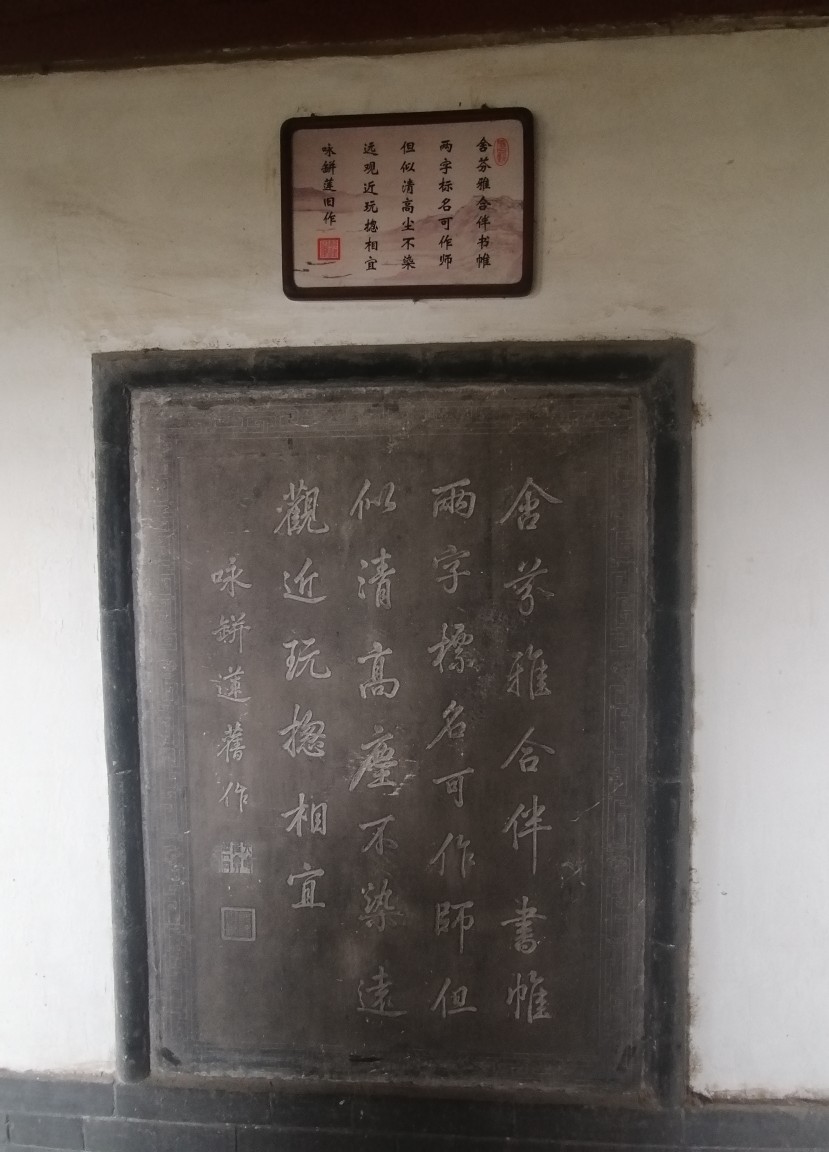 舍芬雅合伴书帷
两字标名可作师
但似清高尘不染
远观近玩揔相宜
咏缾莲旧作
舍芬雅合伴書帷
兩字標名可作師但
似清高塵不染遠
觀近玩揔相宜
咏缾蓮舊作